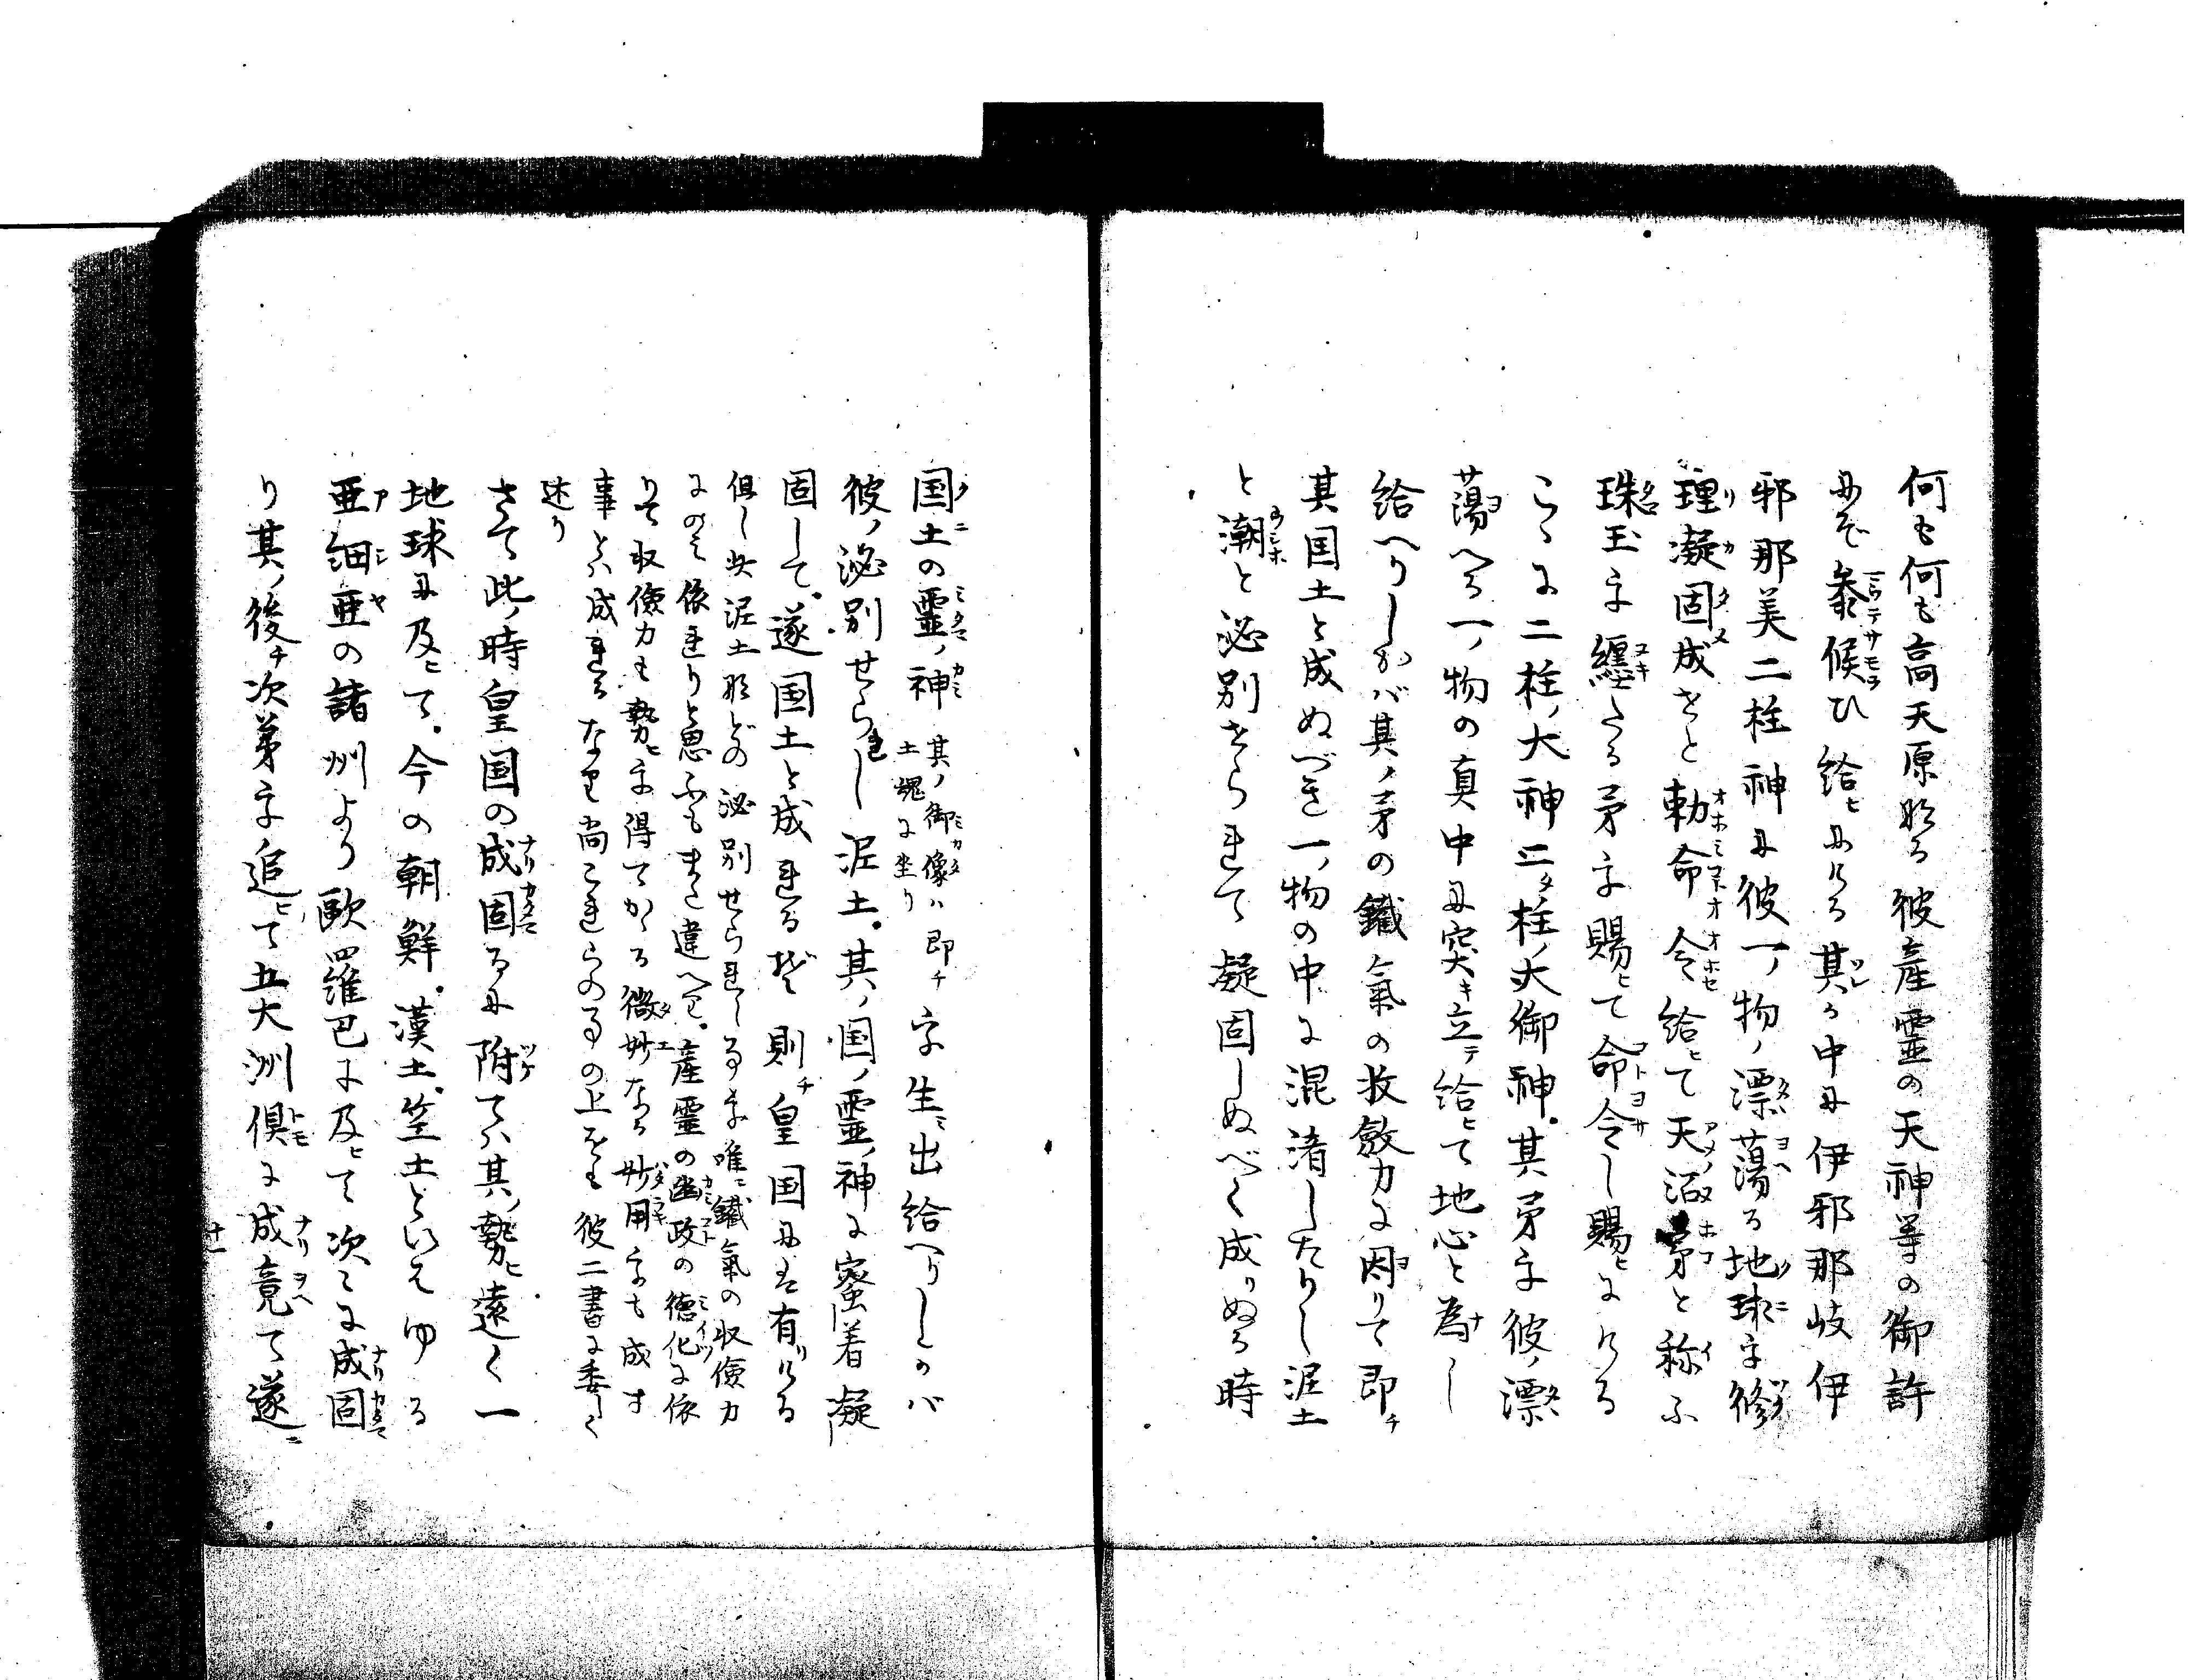 何も何も高天原なる彼産霊の天神等の御許
にぞ参候ひ給ヒにける其カ中に伊邪那岐伊
邪那美二柱神に彼一ノ物ノ漂蕩る地球を修
理凝固成せと勅命令給ヒて天沼矛と称ふ
珠玉を纒たる矛を賜ヒて命令し賜ヒにける
こゝに二柱ノ大神二柱ノ大御神其矛を彼ノ漂
蕩へる一ノ物の真中に突キ立テ給ヒて地心と為し
給へりしかバ其ノ矛の鐵氣の収斂力に因りて即チ
其国土と成ぬづき一ノ物の中に混淆したりし泥土
と潮と泌別せられて凝固しぬべく成りぬる時
国土の靈ノ神 其ノ御像ハ即チ土塊に坐り を生ミ出給へりしかバ
彼ノ泌別せられし泥土其ノ国ノ靈ノ神に密着凝
固して遂国土と成れるぞ則チ皇国には有りける
但し此泥土などの泌別せられしるを唯ニ鐵氣の収儉力
にのミ依れりと思ふもまた違へり産靈の幽政の徳化に依
りて収儉力も勢ヒを得てかゝる微妙なる妙用をも成す
事とハ成れるなり尚これらの事の上をも彼二書に委しく
述り
さて此ノ時皇国の成固るに附てハ其ノ勢ヒ遠く一
地球に及ヒて今の朝鮮漢土笠土といはゆる
亜細亜の諸洲より歐羅巴に及ヒて次々に成固
り其ノ後チ次第を追ヒて五大洲倶に成竟て遂ニ